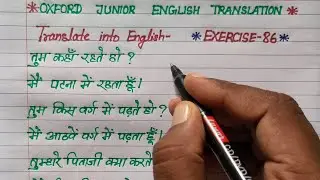 *OXFORD JUNIOR ENGLISH TRANSLATION*
Translate into English- *EXERCISE-86*
तुम कहाँ रहते हो ?
मैं पटना में रहता हूँ।
तुम किस वर्ग में पढ़ते हो ?
मैं आठवें वर्ग में पढ़ता हूँ।
तुम्हारे पिताजी क्या करते